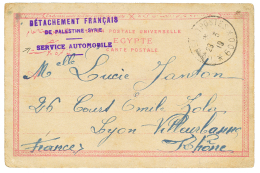 DÉTACHEMENT FRANÇAIS
DE PALESTINE-SYRIE
SERVICE AUTOMOBILE
POSTALE UNIVERSELLE
EGYPTE
CARTE POSTALE
Melle Lucie
26 Court Emile Zola
Lyon Villeurbanne
France Rhône